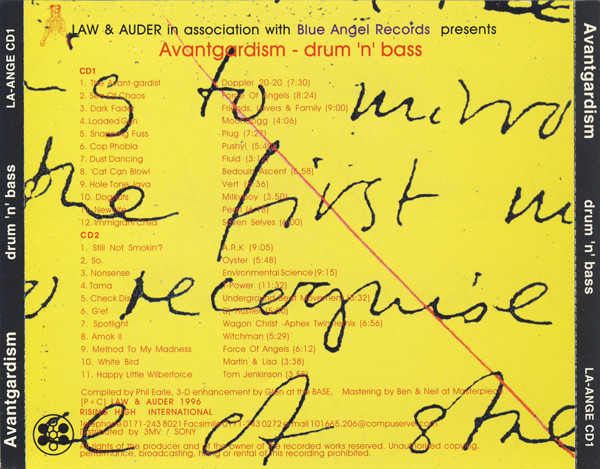 LAW & AUDER in association with Blue Angel Records presents
Avantgardism - drum 'n' bass
CD1
1. The Avant-gardist Doppler 20-20 (7:30)
2. Sea Of Chaos Force Of Angels (8:24)
3. Dark Fader Friends, Lovers & Family (9:00)
4. Loaded Gun Moondogg (4:06)
5. Snapping Fuss Plug (7:27)
6. Cop Phobia Pushy!
7. Dust Dancing Fluid
8. 'Cat Can Blow! Bedouin Ascent (6.58)
9. Hole Tone Java Vert
10. Dognuts Milky Boy (3.50)
11. New Life
12. Immigrant Child Seven Selves
CD2
1. Still Not Smokin'? A.R.K (9:05)
2. So. Oyster (5:48)
3. Nonsense Environmental Science (9:15)
4. Tama T-Power (11:32)
5. Check Dis Underground Beat Movement
6. G'et
7. Spotlight Wagon Christ -Aphex Twin remix (6:56)
8. Amok II Witchman (5:29)
9. Method To My Madness Force Of Angels (6:12)
10. White Bird Martin & Lisa (3:38)
11. Happy Little Wilberforce Tom Jenkinson
Compiled by Phil Earle, 3-D enhancement by Glen at the BASE, Mastering by Ben & Neil at Masterpiece
[P + C] LAW & AUDER 1996
RISING HIGH INTERNATIONAL
Telephone 0171-243 8021 Facsimile 0171-243 0272 email 101665.206@compuserve.com
Distributed by 3MV / SONY
All rights of the producer and of the owner of the recorded works reserved. Unauthorized copying,
performance, broadcasting, hiring or rental of this recording prohibited.
s to mirro
the first m
o recognise
of the
LA-ANGE CD1
drum 'n' bass
Avantgardism
Avantgardism
drum 'n' bass
LA-ANGE CD1